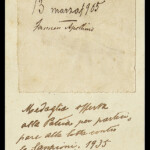 13 marzo 1905
Medaglia offerta
alla Patria per parteci-
pare alla lotta contro
le Sanzioni. 1935